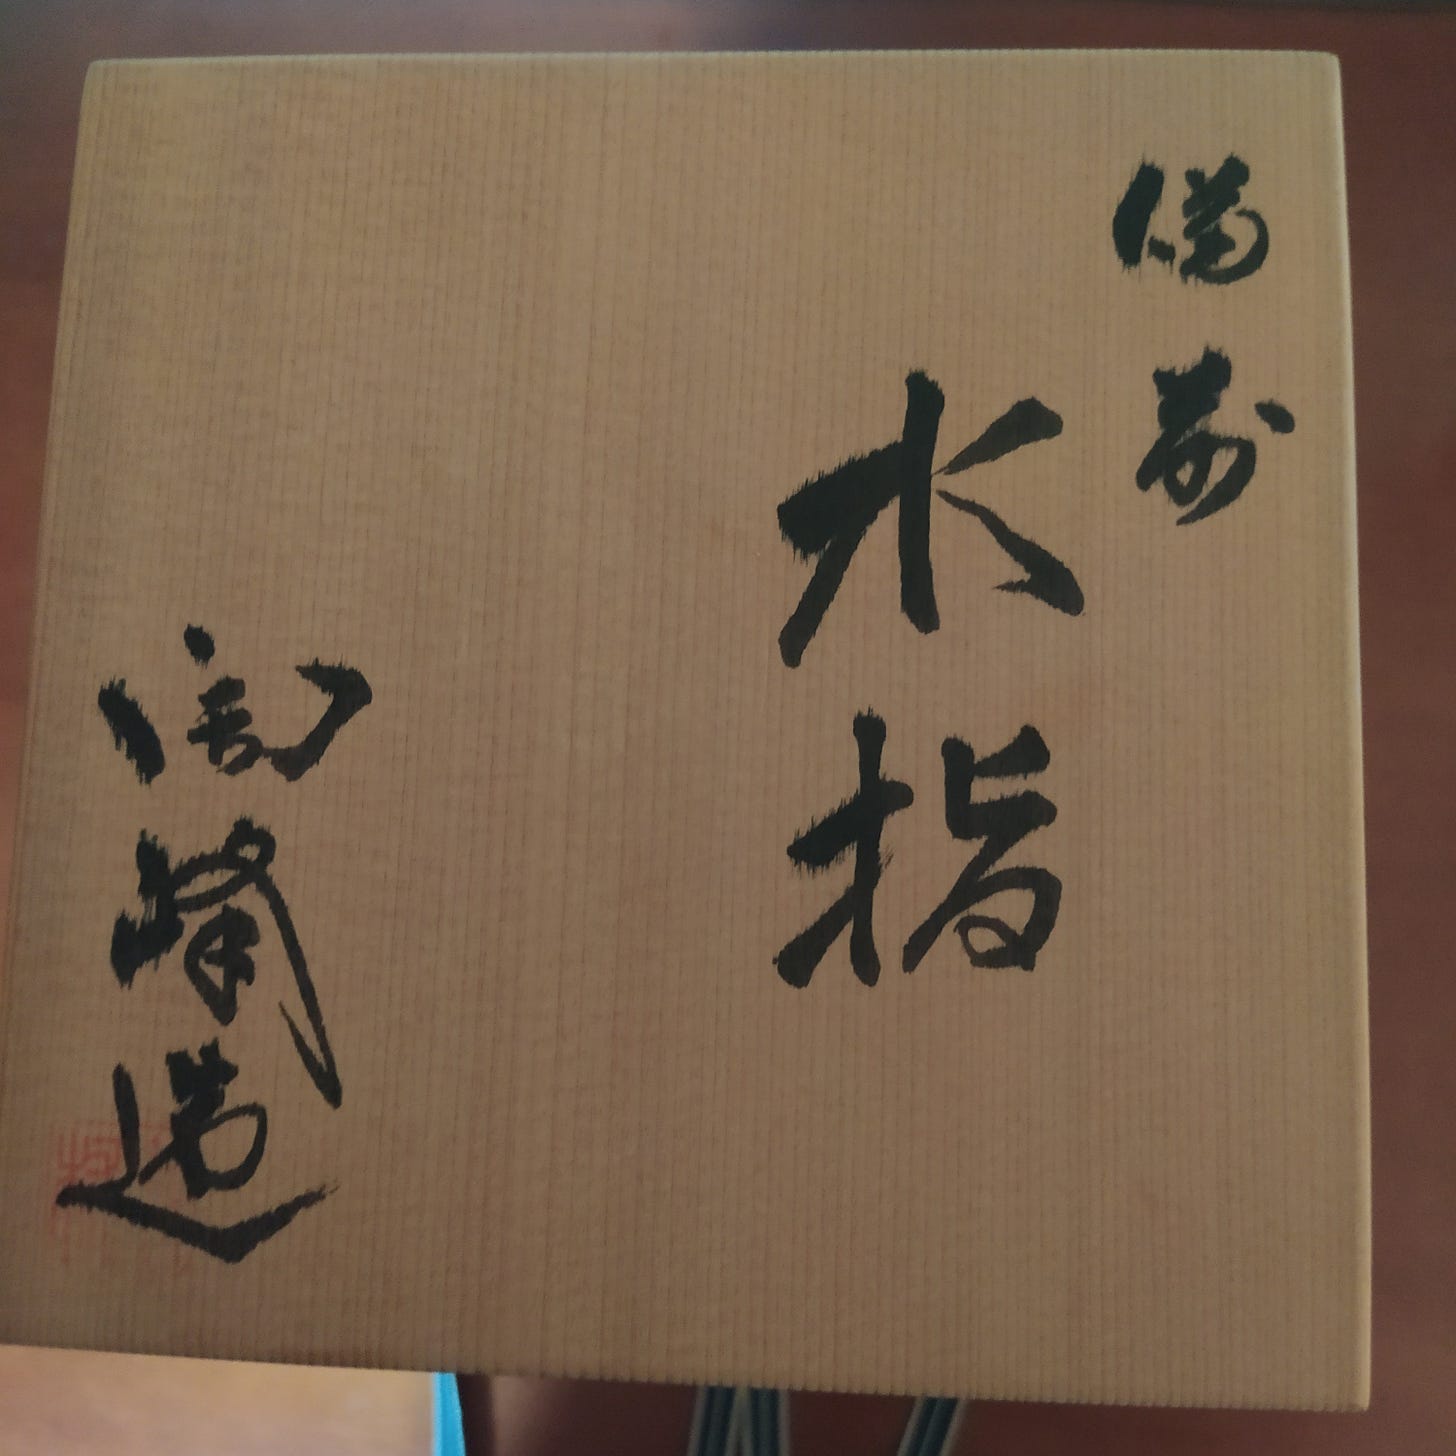 備前
水指
峰造